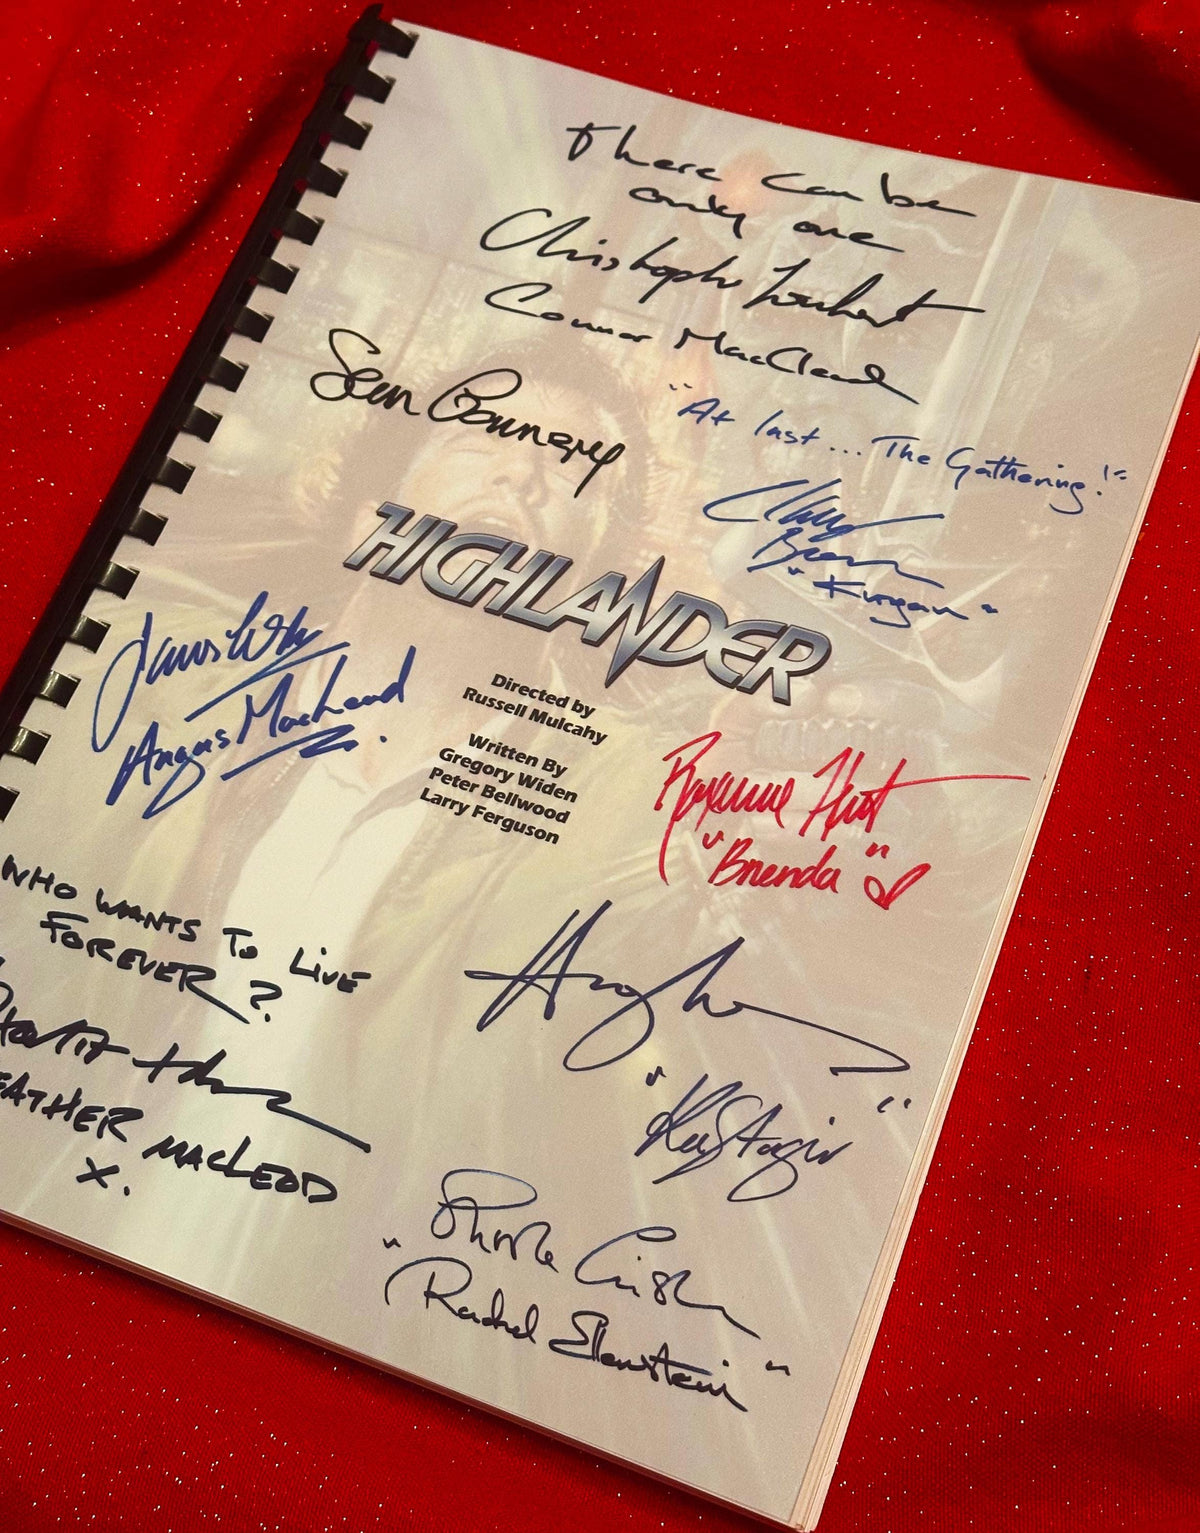 There can be
only one
Christopher Lambert
Connor MacCleod
Sean Connery
"At last... The Gathering!"
Clancy
Brown
"Kurgan"
HIGHLANDER
James Cosmo
Angus MacLeod
Directed by
Russell Mulcahy
Written By
Gregory Widen
Peter Bellwood
Larry Ferguson
Roxanne Hart
"Brenda"
WHO WANTS TO LIVE
FOREVER?
EATHER MACLEOD
X.
"Kastagir"
Sheila Gish
"Rachel Ellenstein"